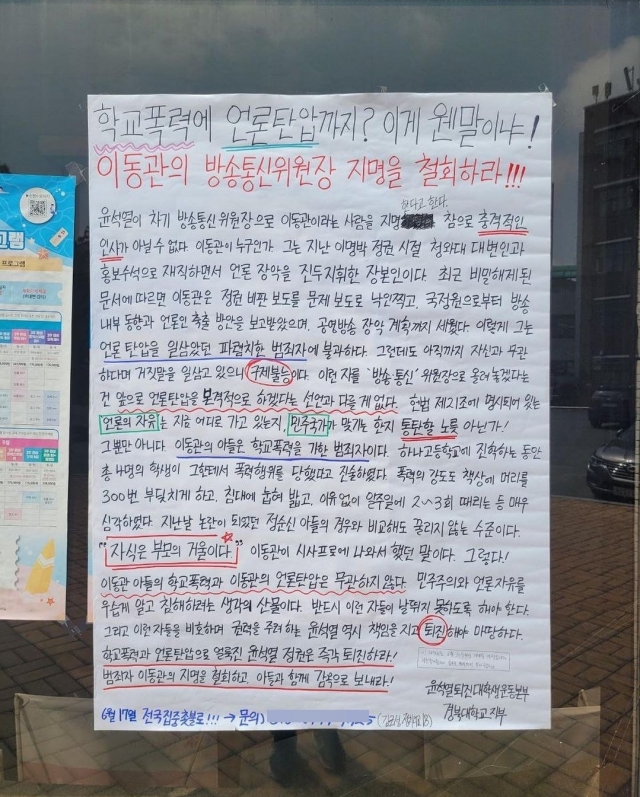 학교폭력에 언론탄압까지? 이게 웬말이냐!
이동관의 방송통신위원장 지명을 철회하라!!!
한다고 한다.
윤석열이 차기 방송통신위원장으로 이동관이라는 사람을 지명 참으로 충격적인
인사가 아닐 수 없다. 이동관이 누구인가. 그는 지난 이명박 정권 시절 청와대 대변인과
홍보수석으로 재직하면서 언론 장악을 진두지휘한 장본인이다. 최근 비밀해제된
문서에 따르면 이동관은 정권 비판 보도를 문제 보도로 낙인찍고, 국정원으로부터 방송
내부 동향과 언론인 축출 방안을 보고받았으며, 공영방송 장악 계획까지 세웠다. 이렇게 그는
언론 탄압을 일삼았던 파렴치한 범죄자에 불과하다. 그런데도 아직까지 자신과 무관
하다며 거짓말을 일삼고 있으니 구제불능이다. 이런 자를 '방송통신' 위원장으로 올려놓겠다는
건 앞으로 언론탄압을 본격적으로 하겠다는 선언과 다를 게 없다. 헌법 제21조에 명시되어 있는
언론의 자유는 지금 어디로 가고 있는지, 민주국가가 맞기는 한지 통탄할 노릇 아닌가!
그뿐만 아니다. 이동관의 아들은 학교폭력을 가한 범죄자이다. 하나고등학교에 진학하는 동안
총 4명의 학생이 그한테서 폭력행위를 당했다고 진술하였다. 폭력의 강도도 책상에 머리를
300번 부딪치게 하고, 침대에 눕혀 밟고, 이유 없이 일주일에 2~3회 때리는 등 매우
심각하였다. 지난날 논란이 되었던 정순신 아들의 경우와 비교해도 꿀리지 않는 수준이다.
"자식은 부모의 거울이다." 이동관이 시사프로에 나와서 했던 말이다. 그렇다!
이동관 아들의 학교폭력과 이동관의 언론탄압은 무관하지 않다. 민주주의와 언론자유를
우습게 알고 침해하려는 생각의 산물이다. 반드시 이런 자들이 날뛰지 못하도록 해야 한다.
그리고 이런 자들을 비호하며 권력을 주려 하는 윤석열 역시 책임을 지고 퇴진해야 마땅하다.
학교폭력과 언론탄압으로 얼룩진 윤석열 정권은 즉각 퇴진하라!
범죄자 이동관의 지명을 철회하고, 아들과 함께 감옥으로 보내라!
윤석열퇴진대학생운동본부
경북대학교 지부
6월 17일 전국집중촛불로!!! → 문의)